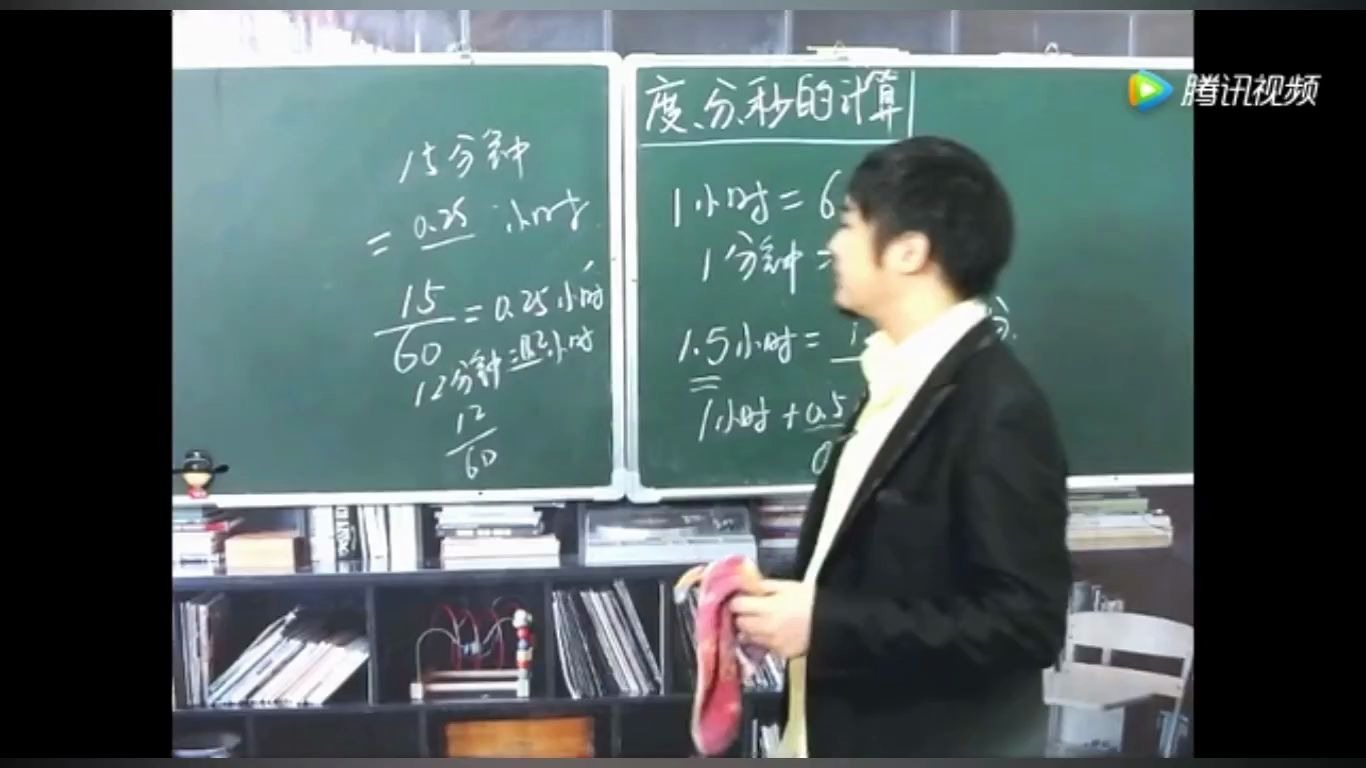 15分钟
= 0.25 小时
15/60 = 0.25小时
12分钟=0.2小时
12/60
度、分、秒的计算
1小时 = 6
1分钟 =
1.5小时 =
1小时 + 0.5
腾讯视频